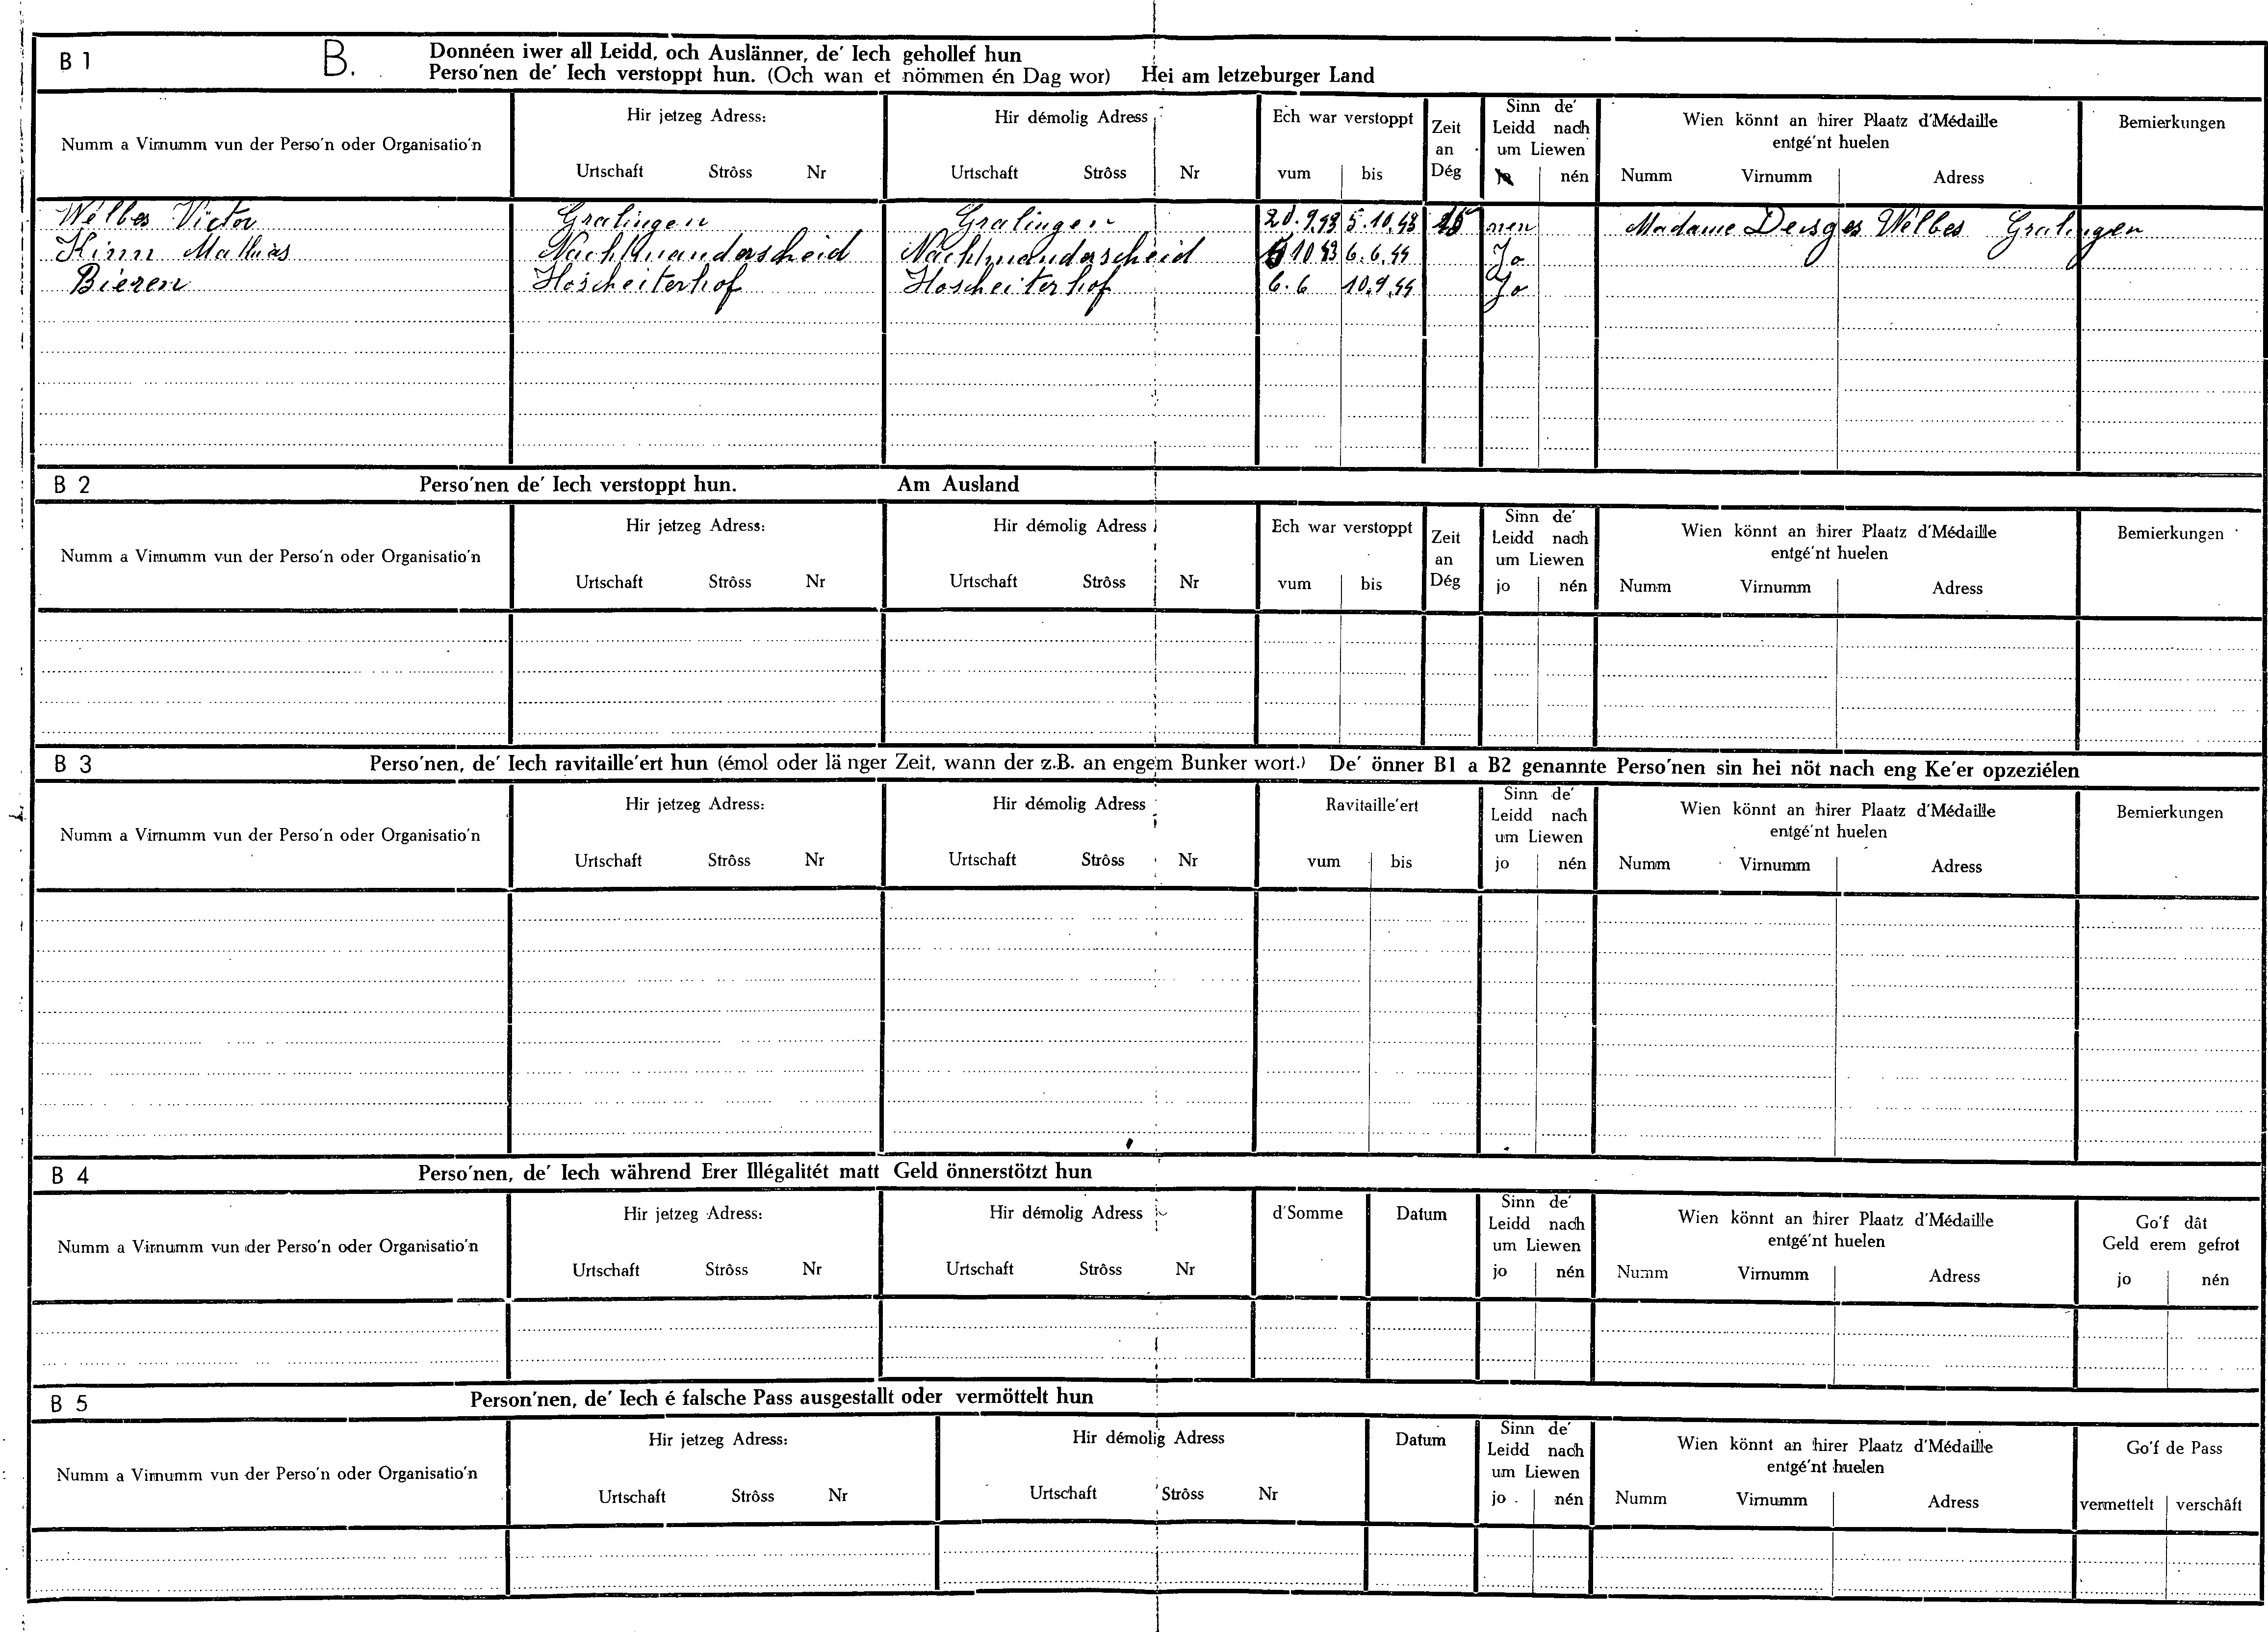 B 1 B. Donnéen iwer all Leidd, och Auslänner, de' Iech gehollef hun
Perso'nen de' Iech verstoppt hun. (Och wan et nömmen én Dag wor) Hei am letzeburger Land
Numm a Virnumm vun der Perso'n oder Organisatio'n
Hir jetzeg Adress:
Urtschaft Strôss Nr
Hir démolig Adress
Urtschaft Strôss Nr
Ech war verstoppt
vum bis
Zeit
an
Dég
Sinn de'
Leidd nach
um Liewen
jo nén
Wien könnt an hirer Plaatz d'Médaille
entgé'nt huelen
Numm Virnumm Adress
Bemierkungen
Welbes Victor Gralingen Gralingen 20.9.43 5.10.43 15 nen Madame Welbes Gralingen
Kinn Mathias Nachtmanderscheid Nachtmanderscheid 5 10 43 6.6.44 Jo
Bieren Hoscheiterhof Hoscheiterhof 6.6 10.9.44 Jo
B 2 Perso'nen de' Iech verstoppt hun. Am Ausland
Numm a Virnumm vun der Perso'n oder Organisatio'n
Hir jetzeg Adress:
Urtschaft Strôss Nr
Hir démolig Adress
Urtschaft Strôss Nr
Ech war verstoppt
vum bis
Zeit
an
Dég
Sinn de'
Leidd nach
um Liewen
jo nén
Wien könnt an hirer Plaatz d'Médaille
entgé'nt huelen
Numm Virnumm Adress
Bemierkungen
B 3 Perso'nen, de' Iech ravitaille'ert hun (émol oder länger Zeit, wann der z.B. an engem Bunker wort.) De' önner B1 a B2 genannte Perso'nen sin hei nöt nach eng Ke'er opzeziélen
Numm a Virnumm vun der Perso'n oder Organisatio'n
Hir jetzeg Adress:
Urtschaft Strôss Nr
Hir démolig Adress
Urtschaft Strôss Nr
Ravitaille'ert
vum bis
Sinn de'
Leidd nach
um Liewen
jo nén
Wien könnt an hirer Plaatz d'Médaille
entgé'nt huelen
Numm Virnumm Adress
Bemierkungen
B 4 Perso'nen, de' Iech während Erer Illégalitét matt Geld önnerstötzt hun
Numm a Virnumm vun der Perso'n oder Organisatio'n
Hir jetzeg Adress:
Urtschaft Strôss Nr
Hir démolig Adress
Urtschaft Strôss Nr
d'Somme
Datum
Sinn de'
Leidd nach
um Liewen
jo nén
Wien könnt an hirer Plaatz d'Médaille
entgé'nt huelen
Numm Virnumm Adress
Go'f dât
Geld erem gefrot
jo nén
B 5 Person'nen, de' Iech é falsche Pass ausgestallt oder vermöttelt hun
Numm a Virnumm vun der Perso'n oder Organisatio'n
Hir jetzeg Adress:
Urtschaft Strôss Nr
Hir démolig Adress
Urtschaft Strôss Nr
Datum
Sinn de'
Leidd nach
um Liewen
jo nén
Wien könnt an hirer Plaatz d'Médaille
entgé'nt huelen
Numm Virnumm Adress
Go'f de Pass
vermettelt verschâft